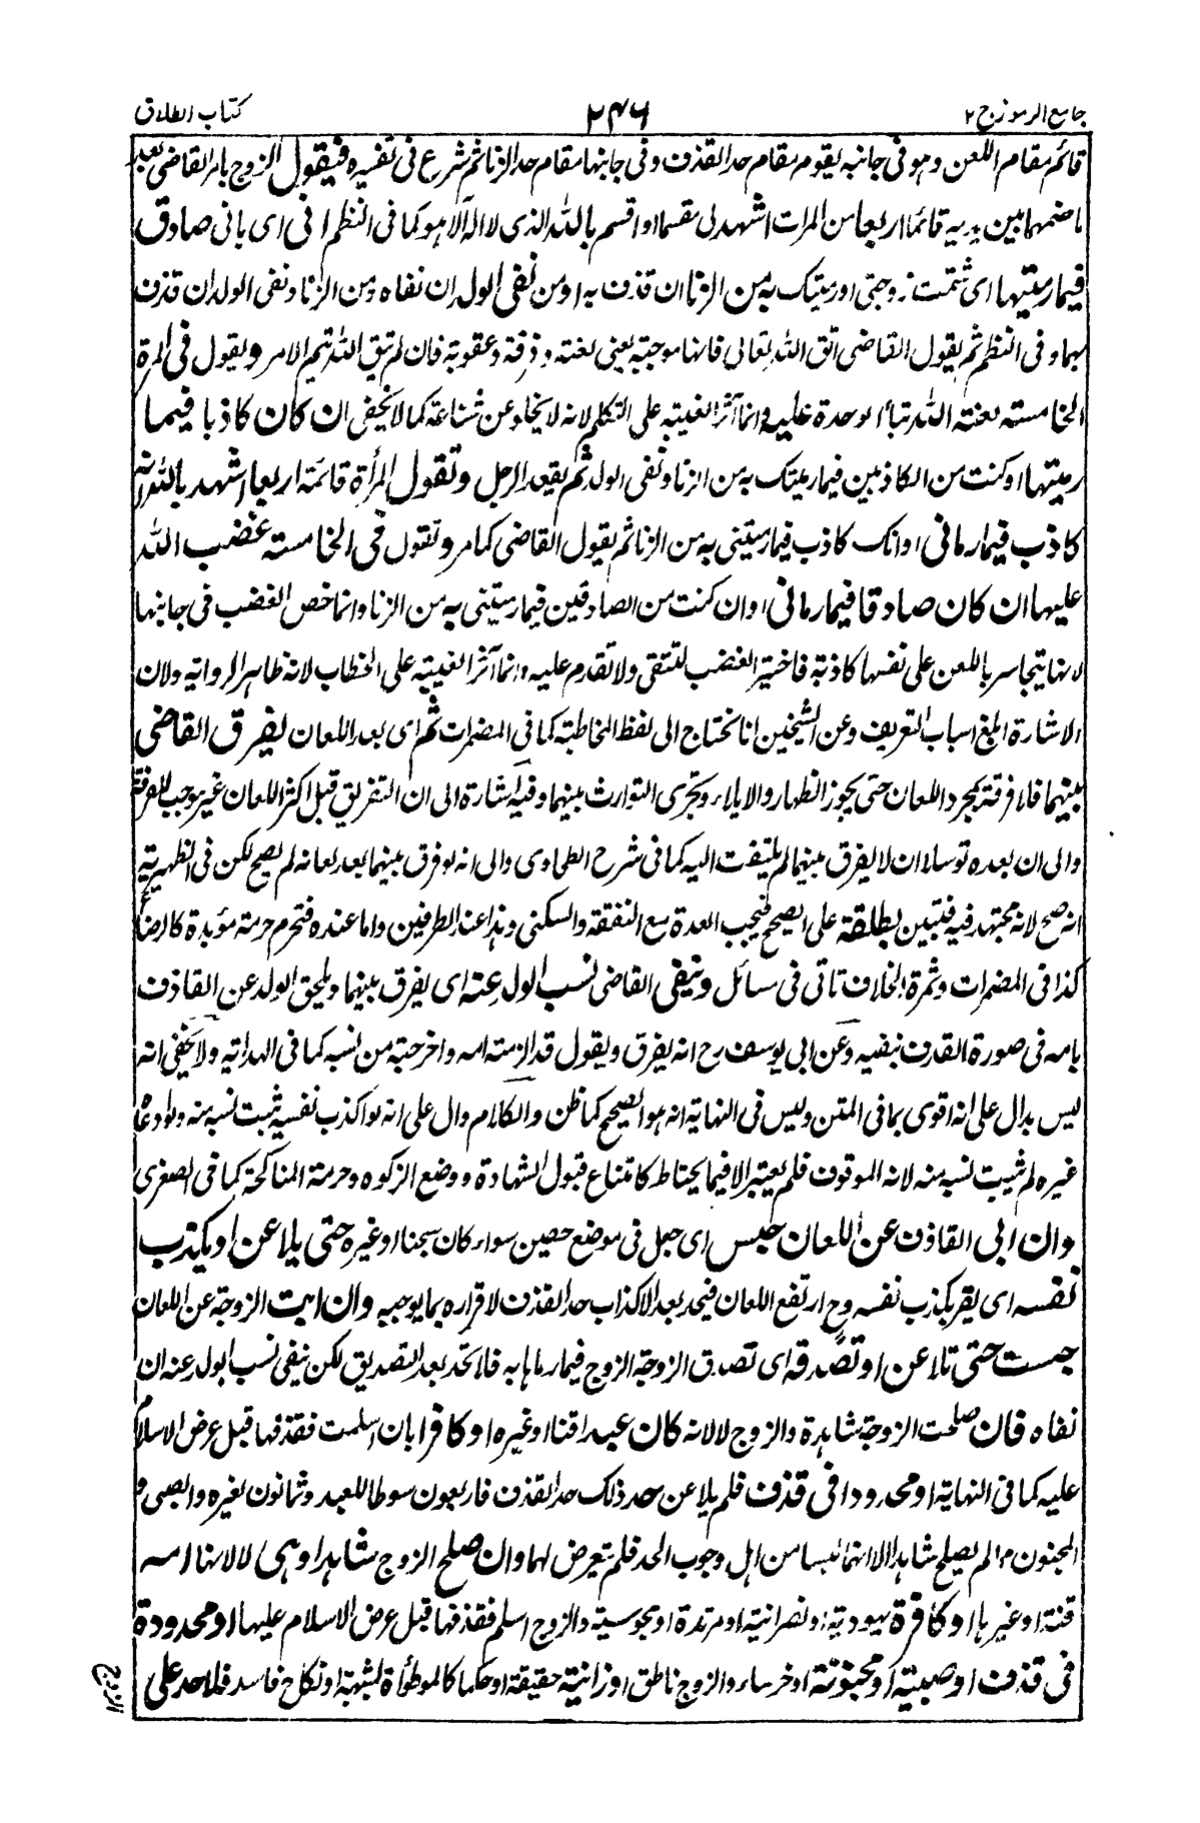 جامع الرموز ج ٢
٢٤٦
كتاب الطلاق
قائم مقام اللعن وهو في جانبه يقوم مقام حد القذف وفي جانبها مقام حد الزنا ثم شرع في تفسيره فيقول الزوج بامر القاضي بعد
ما ضمهما بين يديه قائما اربعا من المرات اشهد لي مقسما او اقسم بالله الذي لا اله الا هو كما في النظم اني اي باني صادق
فيما رميتها اي شتمت زوجتي او رميتك به من الزنا ان قذف به او من نفي الولد ان نفاه ومن الزنا ونفي الولد ان قذف
بهما وفي النظم ثم يقول القاضي اتق الله تعالى فانها موجبة يعني لعنته وفرقة وعقوبة فان لم يتق الله تيم الامر ويقول في المرة
الخامسة لعنة الله عليه وانما آثر الغيبة على التكلم لانه لا يخلو عن شناعة كما لا يخفى ان كان كاذبا فيما
رميتها او كنت من الكاذبين فيما رميتك به من الزنا ونفي الولد ثم يقعد الرجل وتقول المرأة قائمة اربعا اشهد بالله انه
كاذب فيما رماني او انك كاذب فيما رميتني به من الزنا ثم يقول القاضي كما مر وتقول في الخامسة غضب الله
عليها ان كان صادقا فيما رماني او ان كنت من الصادقين فيما رميتني به من الزنا وانما خص الغضب في جانبها
لانها يتجاسر باللعن على نفسها كاذبة فاختير الغضب لتتقي ولا تقدم عليه وانما آثر الغيبة على الخطاب لانه ظاهر الرواية ولان
الاشارة ابلغ اسباب التعريف وعن الشيخين انا نحتاج الى لفظ المخاطبة كما في المضمرات ثم اي بعد اللعان يفرق القاضي
بينهما فلا فرقة بمجرد اللعان حتى يجوز الظهار والايلاء وتجري التوارث بينهما وفيه اشارة الى ان التفريق قبل اكثر اللعان غير موجب للفرقة
والى ان بعده لو سالا ان لا يفرق بينهما لم يلتفت اليه كما في شرح الطحاوي والى انه لو فرق بينهما بعد لعانه لم يصح لكن في الظهيرية
انه صح لانه مجتهد فيه فتبين بطلقة على الصحيح فيجب العدة مع النفقة والسكنى وهذا عند الطرفين واما عنده فتحرم حرمة مؤبدة كالرضاع
كذا في المضمرات وثمرة الخلاف تاتي في مسائل وينفي القاضي نسب الولد عنه اي يفرق بينهما ويلحق الولد عن القاذف
بامه في صورة القذف بنفيه وعن ابي يوسف رح انه يفرق ويقول قد الزمته امه واخرجته من نسبه كما في الهداية ولا يخفى انه
ليس بدال على انه اقوى بما في المتن وليس في النهاية انه هو الصحيح كما ظن والكلام دال على انه لو اكذب نفسه ثبت نسبه منه ولو ادعاه
غيره لم يثبت نسبه منه لانه الموقوف فلم يعتبر الا فيما يحتاط كامتناع قبول الشهادة ووضع الزكوه وحرمة المناكحة كما في الصغرى
وان ابى القاذف عن اللعان حبس اي جعل في موضع حصين سواء كان سجنا او غيره حتى يلاعن او يكذب
نفسه اي يقر بكذب نفسه وح ارتفع اللعان فيحد بعد الاكذاب حد القذف لاقراره بما يوجبه وان ابت الزوجة عن اللعان
حبست حتى تلاعن او تصدقه اي تصدق الزوجة الزوج فيما رماها به فلا تحد بعد التصديق لكن نفي نسب الولد عنه ان
نفاه فان صلحت الزوجة شاهدة والزوج لا لانه كان عبدا قنا او غيره او كافرا بان اسلمت فقذفها قبل عرض الاسلام
عليه كما في النهاية او محدودا في قذف فلم يلاعن حد ذلك حد القذف فاربعون سوطا للعبد وثمانون لغيره والصبي و
المجنون مما لم يصلح شاهدا الا انهما ليسا من اهل وجوب الحد فلم يتعرض لهما وان صلح الزوج شاهدا وهي لا لانها امه
قنة او غيرها او كافرة يهودية او نصرانية او مرتدة او مجوسية والزوج اسلم فقذفها قبل عرض الاسلام عليها او محدودة
في قذف او صبية او مجنونة او خرساء والزوج ناطق او زانية حقيقة او حكما كالموطوأة لشبهة او نكاح فاسد فلا حد على
الزوج